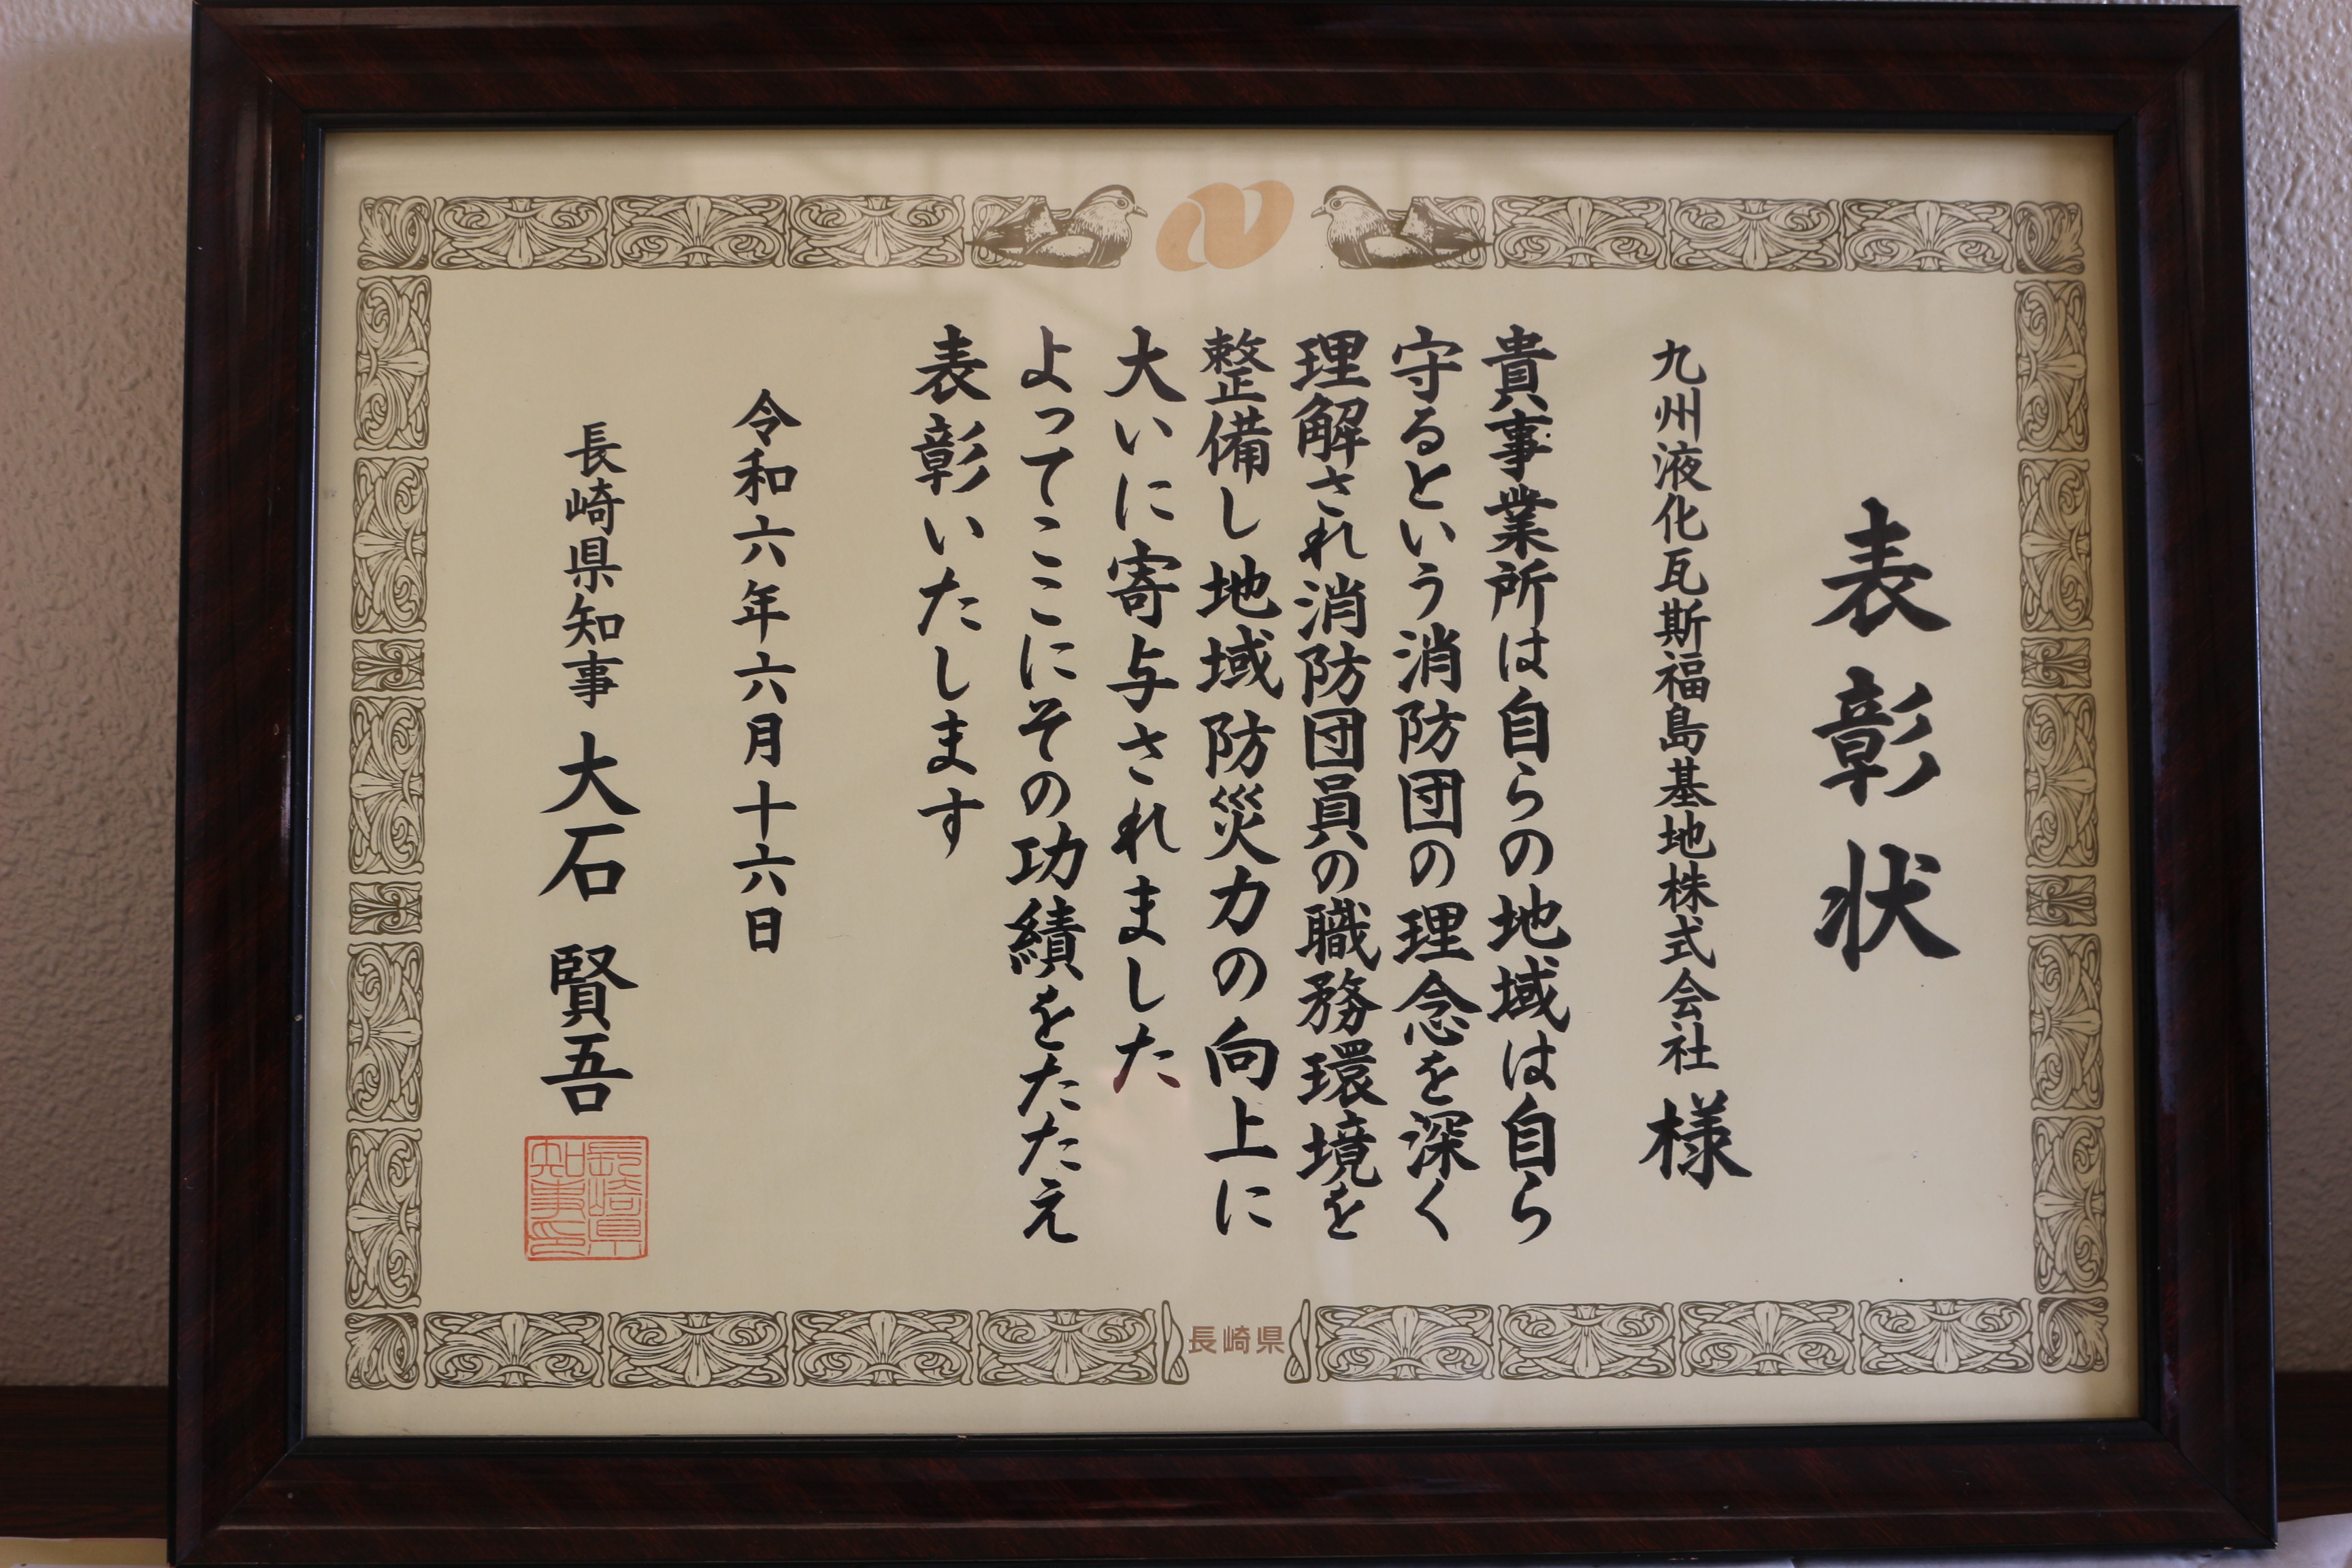 表彰状
九州液化瓦斯福島基地株式会社 様
貴事業所は自らの地域は自ら
守るという消防団の理念を深く
理解され消防団員の職務環境を
整備し地域防災力の向上に
大いに寄与されました
よってここにその功績をたたえ
表彰いたします
令和六年六月十六日
長崎県知事 大石 賢吾
長崎県
知事印
長崎県